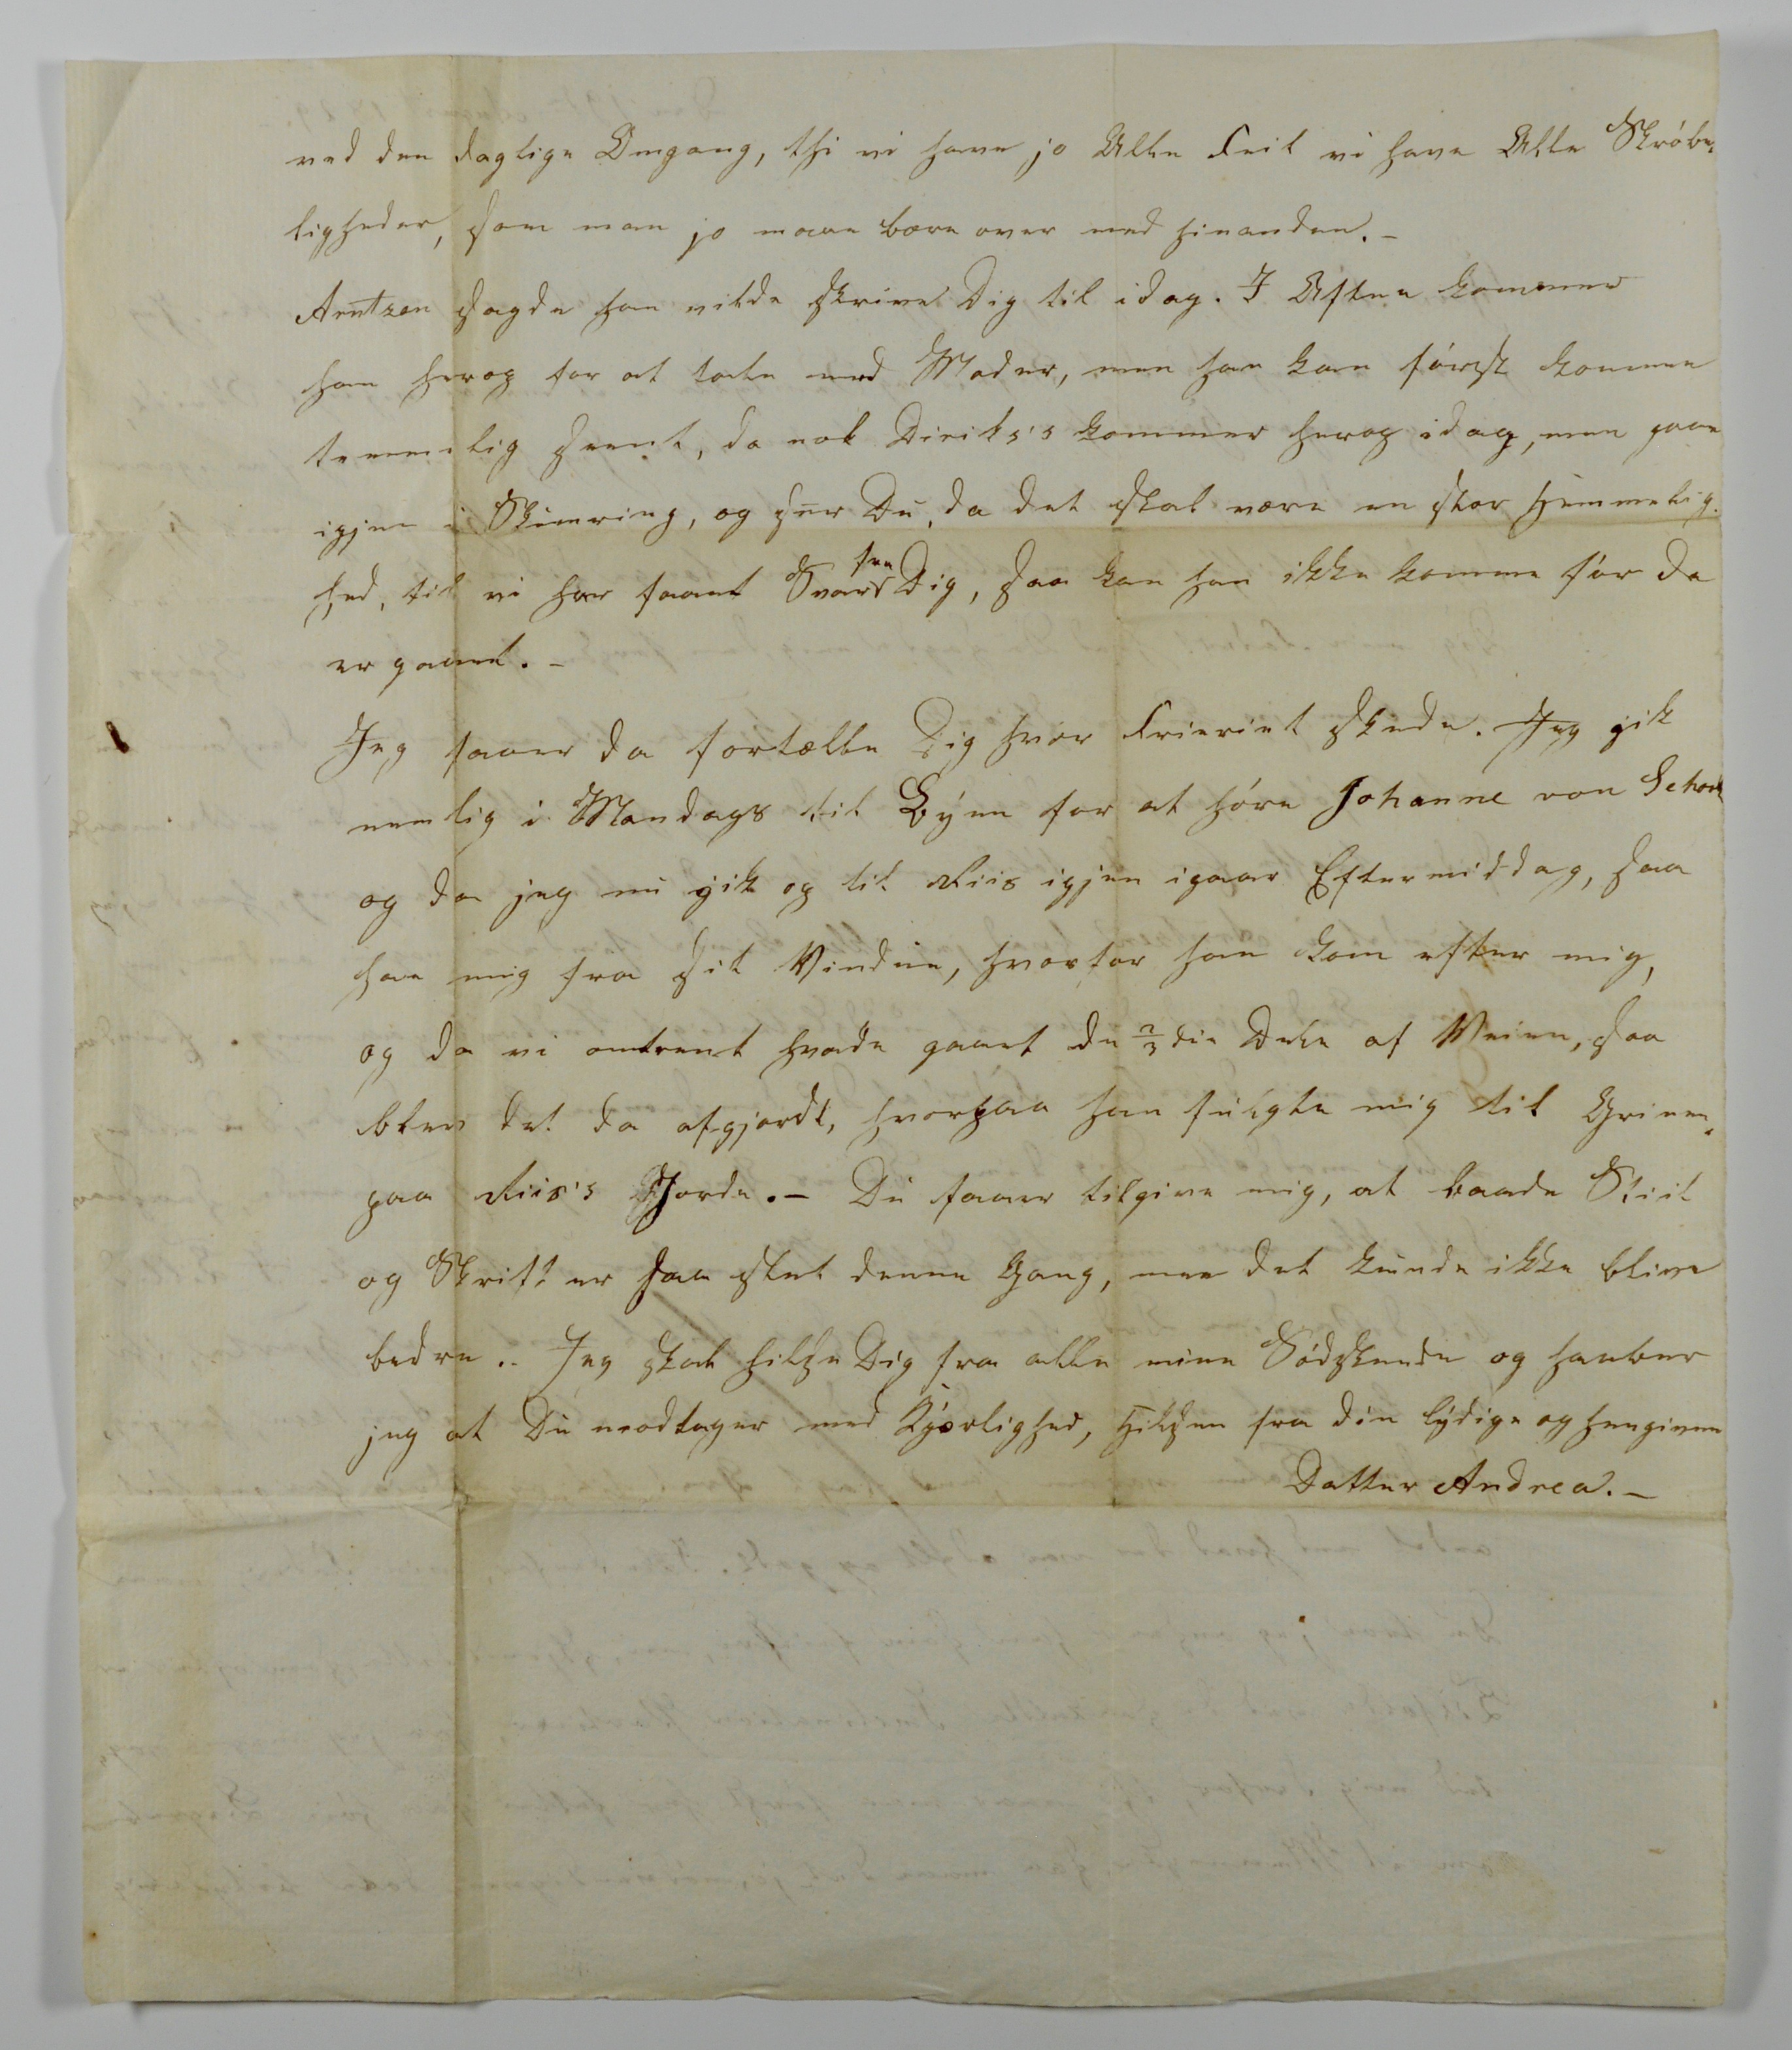 ved den daglige Omgang, thi vi have jo Alle Feil vi have Alle Skröbe-
ligheder, som man jo maae bære over med hinanden. –
Arntzen sagde han vilde skrive Dig til idag. I Aften kommer
han herop for at tale med Moder, men han kan först komme
temmelig seent, da nok Dirik's kommer herop idag, men gaae
igjen i Skumring, og seer Du, da det skal være en stor Hemmelig-
hed, til vi har faaet Svar fra Dig, saa kan han ikke komme för de
er gaaet. –
Jeg faaer da fortælle Dig hvor Frieriet skede. Jeg gik
nemlig i Mandags til Byen for at höre Johanne von Schou
og da jeg nu gik op til Riis igjen igaar Eftermiddag, saae
han mig fra sit Vindue, hvorfor han kom efter mig,
og da vi omtrent havde gaaet de 2/3 die Dele af Veien, saa
blev det da afgjordt, hvorpaa han fulgte mig til Grinen
paa Riis's Jorde. – Du faaer tilgive mig, at baade Stiil
og Skrift er saa slet denne Gang, men det kunde ikke blive
bedre. – Jeg skal hilse Dig fra alle mine Södskende og haaber
jeg at Du modtager med Kjærlighed, Hilsen fra din lydige og hengivne
Datter Andrea. –